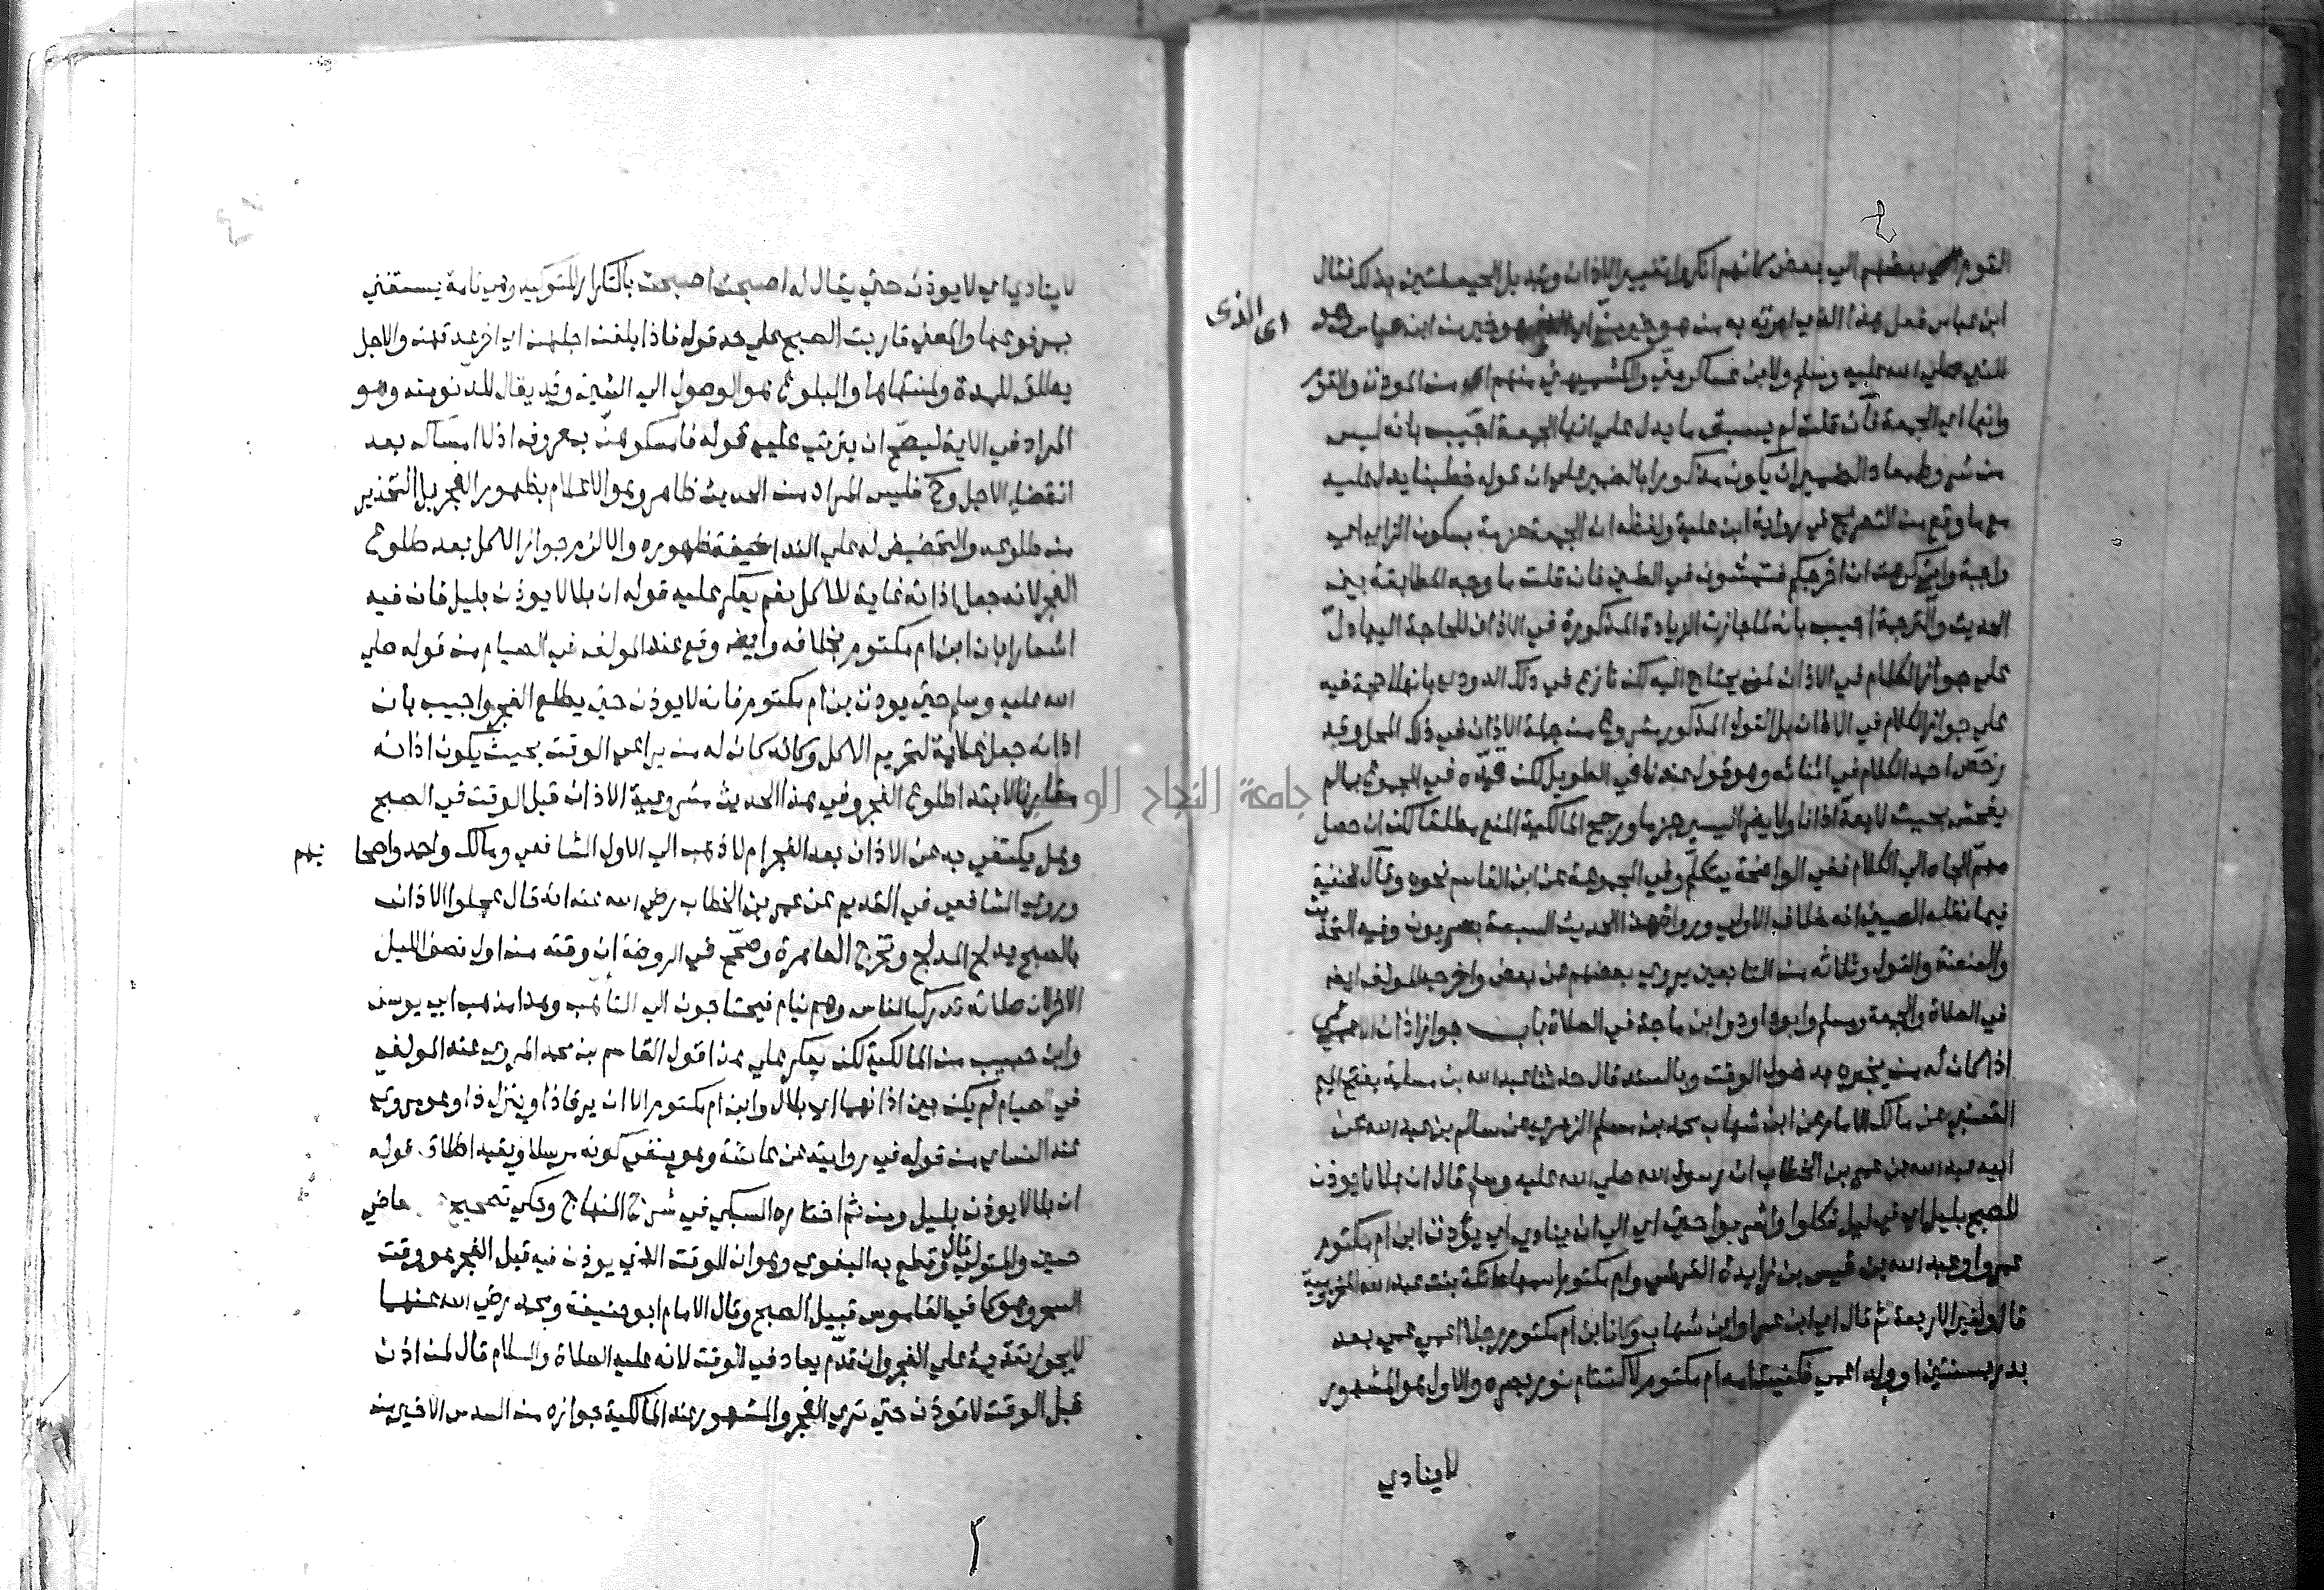 القوم بعضهم الي بعض كانهم انكروا تغيير الاذان وتبديل الحيعلتين بذلك فقال
ابن عباس فعل هذا الذي امرته به من هو خير منه اي الذي هو خير من ابن عباس هو
اي الذي
النبي صلي الله عليه وسلم ولابن عساكر مني وللكشميهني منهم اي من الموذن والقوم
وانها اي الجمعة فان قلت لم يسبق ما يدل علي انها الجمعة اجيب بانه ليس
من شروط معاد الضمير ان يكون مذكورا بالضمير علي ان قوله خطبنا يدل عليه
مع ما وقع من التصريح في رواية ابن علية ولفظه ان الجمعة عزمة بسكون الزاي اي
واجبة واني كرهت ان اخرجكم فتمشون في الطين فان قلت ما وجه المطابقة بين
الحديث والترجمة اجيب بانه لما جازت الزيادة المذكورة في الاذان للحاجة اليها دل
علي جواز الكلام في الاذان لمن يحتاج اليه لكن نازع في ذلك الداودي بانه لا حجة فيه
علي جواز الكلام في الاذان بل القول المذكور مشروع من جملة الاذان في ذلك المحل وقد
رخص احمد الكلام في اثنائه وهو قول عندنا في الطويل لكن قيده في المجموع بما لم
يفحش بحيث لا يعد اذانا ولا يضر اليسير جزما ورجح المالكية المنع مطلقا لكن ان حصل
مهم الجاه الي الكلام ففي الواضحة يتكلم وفي المجموعة عن ابن القاسم نحوه وقال الحنفية
فيما نقله العيني انه خلاف الاولي ورواة هذا الحديث السبعة بصريون وفيه التحديث
والعنعنة والقول وثلاثه من التابعين يروي بعضهم عن بعض واخرجه المولف ايضا
في الصلاة والجمعة ومسلم وابو داود وابن ماجة في الصلاة باب جواز اذان الاعمي
اذا كان له من يخبره بدخول الوقت وبالسند قال حدثنا عبد الله بن مسلمة بفتح الميم
القعنبي عن مالك الامام عن ابن شهاب محمد بن مسلم الزهري عن سالم بن عبد الله عن
ابيه عبد الله بن عمر بن الخطاب ان رسول الله صلي الله عليه وسلم قال ان بلالا يوذن
للصبح بليل اي في ليل فكلوا واشربوا حتي اي الي ان ينادي اي يؤذن ابن ام مكتوم
عمرو او عبد الله بن قيس بن زايدة القرشي وام مكتوم اسمها عاتكة بنت عبد الله المخزومية
قال ولغير الاربعة ثم قال اي ابن عمر او ابن شهاب وكان ابن ام مكتوم رجلا اعمي عمي بعد
بدر بسنتين او ولد اعمي فكنيت امه ام مكتوم لاكتتام نور بصره والاول هو المشهور
لا ينادي
لا ينادي اي لا يوذن حتي يقال له اصبحت اصبحت بالتكرار للتوكيد وهي تامة يستغني
بمرفوعها والمعني قاربت الصبح علي حد قوله فاذا بلغن اجلهن اي اخر عدتهن والاجل
يطلق للمدة ولمنتهاها والبلوغ هو الوصول الي الشيئ وقد يقال للدنو منه وهو
المراد في الاية ليصح ان يترتب عليه قوله فامسكوهن بمعروف اذ لا امساك بعد
انقضاء الاجل وح فليس المراد من الحديث ظاهره وهو الاعلام بظهور الفجر بل التحذير
من طلوعه والتحضيض له علي النداء خيفة ظهوره والا لزم جواز الاكل بعد طلوع
الفجر لانه جعل اذانه غاية للاكل نعم يعكر عليه قوله ان بلالا يوذن بليل فان فيه
اشعارا بان ابن ام مكتوم بخلافه وايضا وقع عند المولف في الصيام من قوله صلي
الله عليه وسلم حتي يوذن بن ام مكتوم فانه لا يوذن حتي يطلع الفجر واجيب بان
اذانه جعل علامة لتحريم الاكل وكانه كان له من يراعي الوقت بحيث يكون اذانه
مقارنا لابتداء طلوع الفجر وفي هذا الحديث مشروعية الاذان قبل الوقت في الصبح
وهل يكتفي به عن الاذان بعد الفجر ام لا ذهب الي الاول الشافعي ومالك واحمد واصحا بهم
وروي الشافعي في القديم عن عمر بن الخطاب رضي الله عنه انه قال عجلوا الاذان
بالصبح يدلج المدلج وتخرج العاهرة وصحح في الروضة ان وقته من اول نصف الليل
الاخر لان صلاته تدرك الناس وهم نيام فيحتاجون الي التاهب وهذا مذهب ابي يوسف
وابن حبيب من المالكية لكن يعكر علي هذا قول القاسم بن محمد المروي عند المولف
في الصيام لم يكن بين اذانهما اي بلال وابن ام مكتوم الا ان يرقا ذا وينزل ذا وهو مروي
عند النساي من قوله في روايته عن عائشة وهو ينفي كونه مرسلا ويقيد اطلاق قوله
ان بلالا يوذن بليل ومن ثم اختاره السبكي في شرح المنهاج وحكي تصحيحه عن القاضي
حسين والمتولي قال وقطع به البغوي وهو ان الوقت الذي يوذن فيه قبل الفجر هو وقت
السحر وهو كما في القاموس قبيل الصبح وقال الامام ابو حنيفة ومحمد رضي الله عنهما
لا يجوز تقديمه علي الفجر وان قدم يعاد في الوقت لانه عليه الصلاة والسلام قال لمن اذن
قبل الوقت لا توذن حتي تري الفجر والمشهور عند المالكية جوازه من السدس الاخير من
جامعة النجاح الو